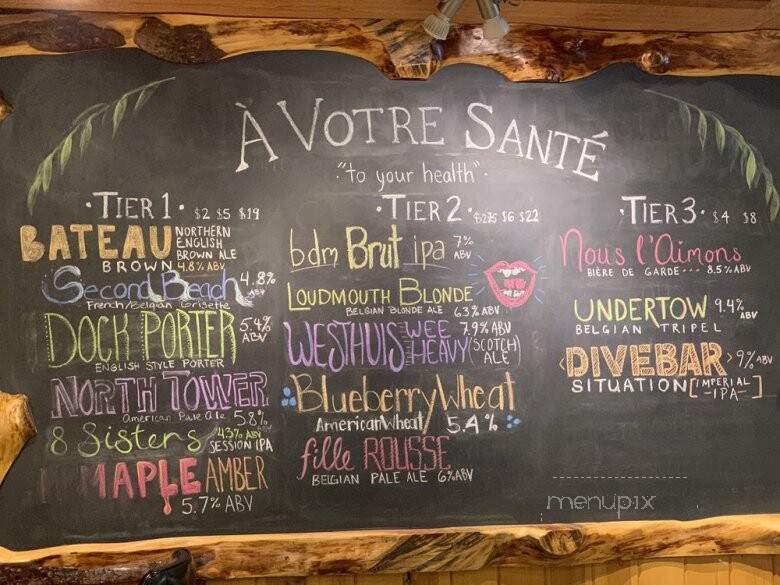 À VOTRE SANTÉ
"to your health"
·TIER 1· $2 $5 $19
BATEAU NORTHERN ENGLISH BROWN ALE
BROWN 4.8% ABV
Second Beach 4.8% ABV
French/Belgian Grisette
DOCK PORTER 5.4% ABV
ENGLISH STYLE PORTER
NORTH TOWER
American Pale Ale 5.8%
8 Sisters 4.3% ABV SESSION IPA
MAPLE AMBER
5.7% ABV
·TIER 2· $2.75 $6 $22
bdm Brut ipa 7% ABV
LOUDMOUTH BLONDE
BELGIAN BLONDE ALE 6.3% ABV
WESTHUIS WEE HEAVY 7.9% ABV (SCOTCH ALE)
Blueberry Wheat
American Wheat 5.4%
fille ROUSSE
BELGIAN PALE ALE 6% ABV
·TIER 3· $4 $8
Nous l'Aimons
BIÈRE DE GARDE --- 8.5% ABV
UNDERTOW 9.4% ABV
BELGIAN TRIPEL
DIVEBAR 9% ABV
SITUATION [IMPERIAL -IPA-]
menupix